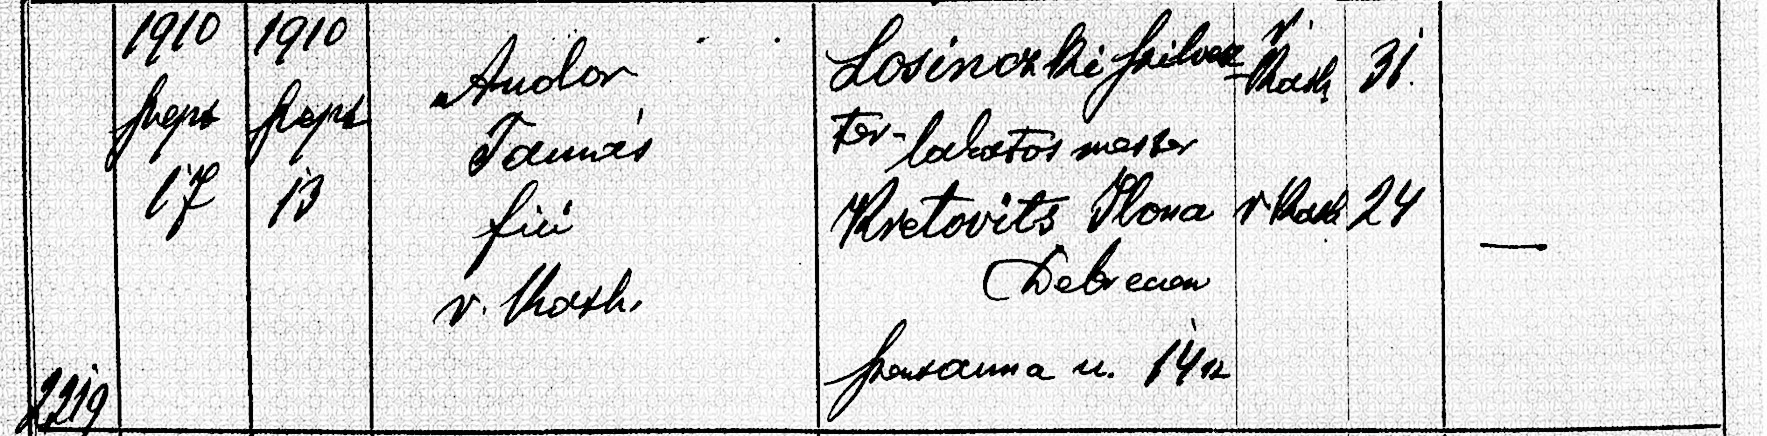 2219
1910
Szept
17
1910
Szept
13
Andor
Tamás
fiú
r. kath.
Losinczki Szilvesz-
ter - lakatos mester
Kretovits Ilona
Debrecen
Szentanna u. 14 sz
r.
kath
31.
r kath
24
—